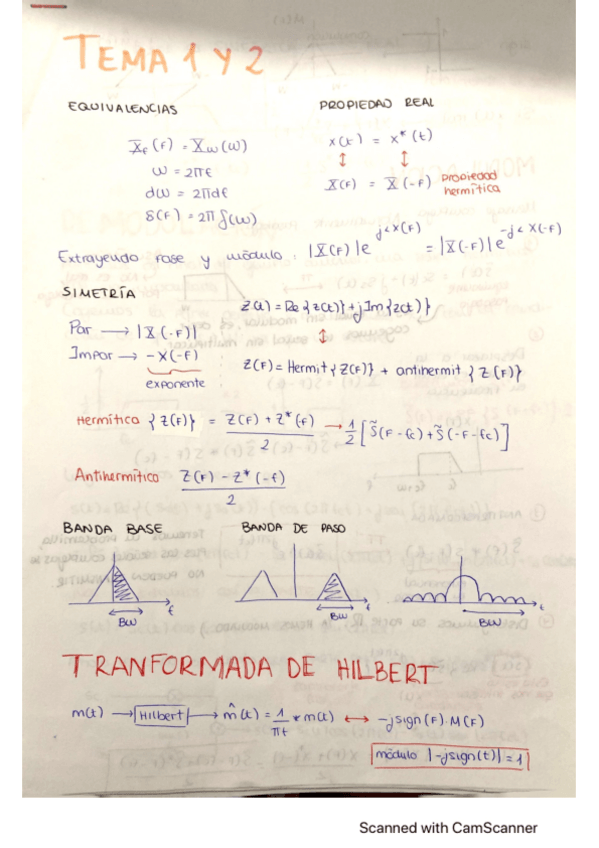 TEMA 1 Y 2
EQUIVALENCIAS
X_F(F) = X_W(W)
W = 2πF
dW = 2πdF
δ(F) = 2π δ(W)
PROPIEDAD REAL
x(t) = x*(t)
↕ ↕
X(F) = X(-F) propiedad hermítica
Extrayendo fase y módulo: |X(F)|e^{j∠X(F)} = |X(-F)|e^{-j∠X(-F)}
SIMETRÍA
Par → |X(-F)|
Impar → -X(-F)
exponente
Z(t) = Re{z(t)} + jIm{z(t)}
↕
Z(F) = Hermit{Z(F)} + antihermit{Z(F)}
Hermítica {Z(F)} = Z(F) + Z*(F) / 2 → 1/2 [S̃(F-fc) + S̃(-F-fc)]
Antihermítica Z(F) - Z*(-F) / 2
BANDA BASE
BW
f
BANDA DE PASO
BW
f
BW
f
TRANFORMADA DE HILBERT
m(t) → Hilbert → m̂(t) = 1/πt * m(t) ↔ -jsign(F).M(F)
módulo |-jsign(t)| = 1
Scanned with CamScanner